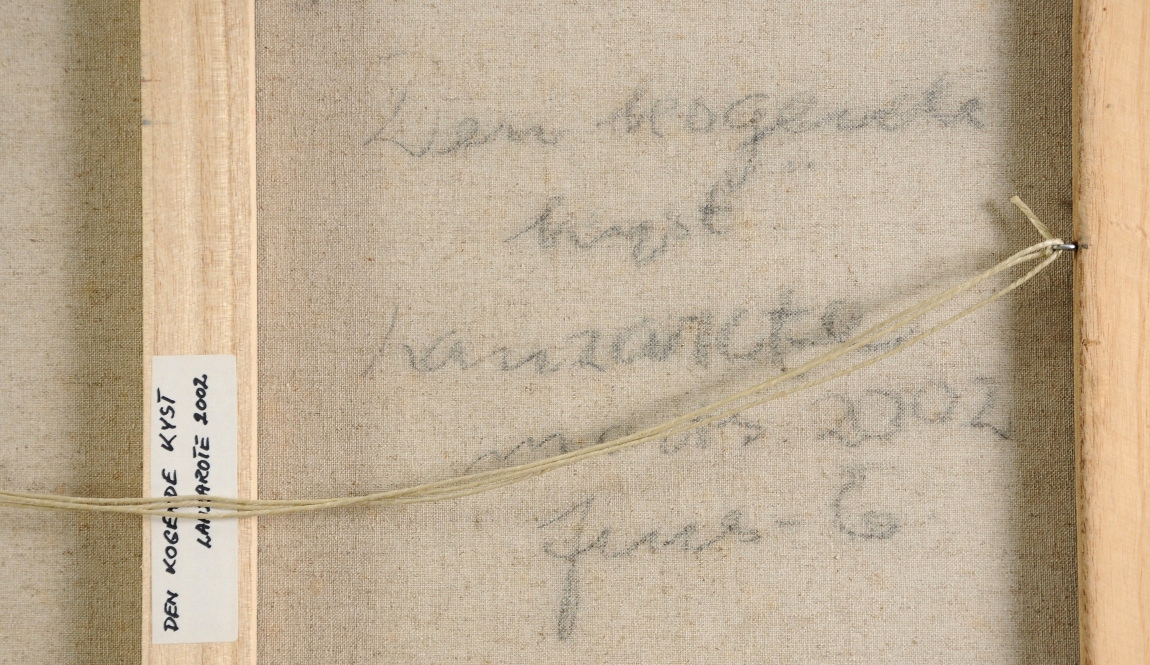 Den kogende
kyst
Lanzarote
marts 2002
Jens-E
DEN KOGENDE KYST
LANZAROTE 2002